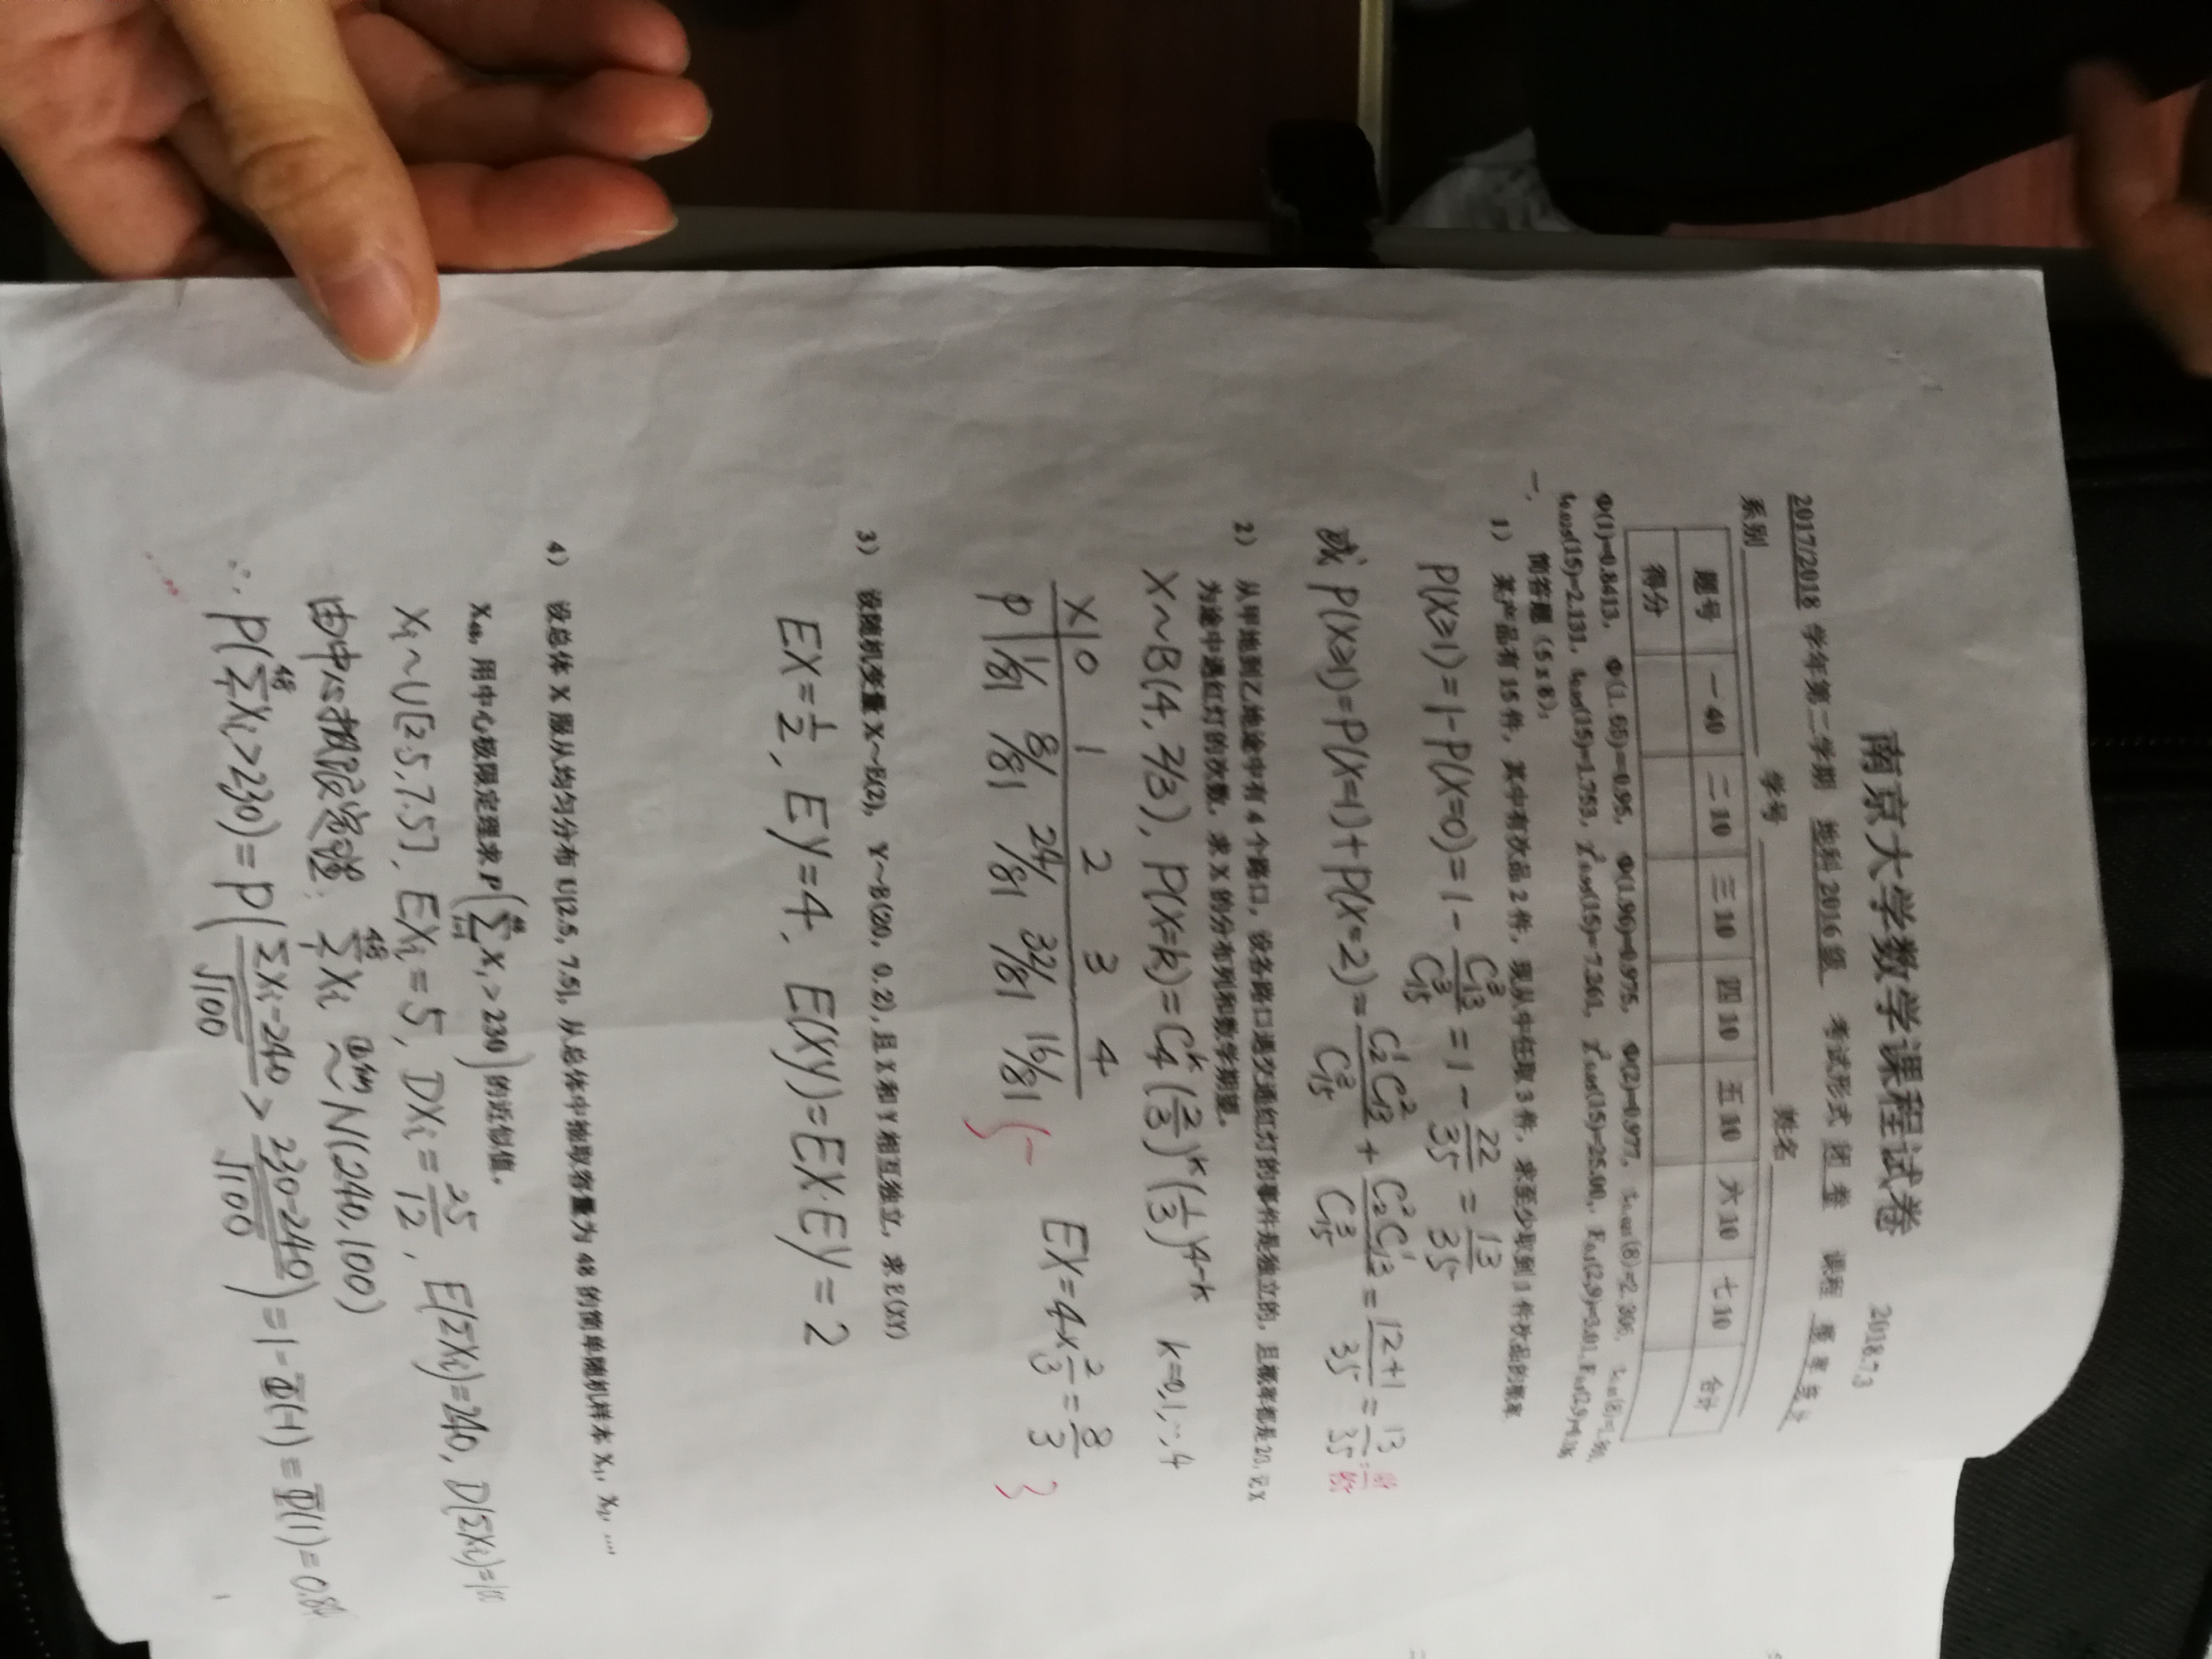 南京大学数学课程试卷 2018.7.3
2017/2018 学年第二学期 地科2016级 考试形式 闭卷 课程 概率统计
系别 学号 姓名
题号 一40 二10 三10 四10 五10 六10 七10 合计
得分
Φ(1)=0.8413, Φ(1.65)=0.95, Φ(1.96)=0.975, Φ(2)=0.977, t₀.₀₂₅(8)=2.306,
t₀.₀₂₅(15)=2.131, t₀.₀₅(15)=1.753, χ²₀.₉₅(15)=7.261, χ²₀.₀₅(15)=25.00, F₀.₁(2,9)=3.01,
一、 简答题(5x8):
1) 某产品有15件,其中有次品2件,现从中任取3件,求至少取到1件次品的概率
P(X≥1)=1-P(X=0)=1-C₁₃³/C₁₅³=1-22/35=13/35
或 P(X≥1)=P(X=1)+P(X=2)=C₂¹C₁₃²/C₁₅³+C₂²C₁₃¹/C₁₅³=(12+1)/35=13/35
2) 从甲地到乙地途中有4个路口,设各路口遇交通红灯的事件是独立的,且概率都是2/3,记X
为途中遇红灯的次数,求X的分布列和数学期望。
X~B(4, 2/3), P(X=k)=C₄ᵏ(2/3)ᵏ(1/3)⁴⁻ᵏ k=0,1,…,4
X 0 1 2 3 4
P 1/81 8/81 24/81 32/81 16/81 5 EX=4×2/3=8/3 3
3) 设随机变量X~E(2), Y~B(20, 0.2),且X和Y相互独立,求E(XY)
EX=1/2, EY=4, E(XY)=EX·EY=2
4) 设总体X服从均匀分布U[2.5, 7.5],从总体中抽取容量为48的简单随机样本X₁, X₂, …,
X₄₈,用中心极限定理求P(∑ᵢ₌₁⁴⁸Xᵢ>230)的近似值。
Xᵢ~U[2.5,7.5], EXᵢ=5, DXᵢ=25/12, E(ΣXᵢ)=240, D(ΣXᵢ)=100
由中心极限定理, Σ₁⁴⁸Xᵢ 近似~N(240,100)
∴ P(Σ₁⁴⁸Xᵢ>230)=P((ΣXᵢ-240)/√100>(230-240)/√100)=1-Φ(-1)=Φ(1)=0.84
1